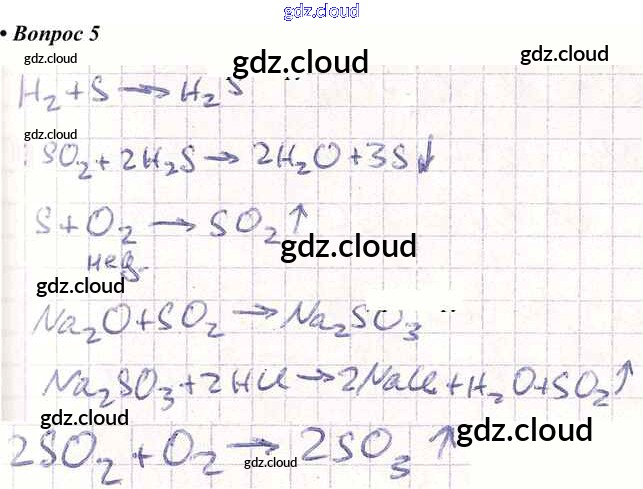 gdz.cloud
• Вопрос 5
gdz.cloud gdz.cloud gdz.cloud
H₂ + S → H₂S
gdz.cloud
SO₂ + 2H₂S → 2H₂O + 3S↓
S + O₂ → SO₂↑
нед.
gdz.cloud
gdz.cloud
Na₂O + SO₂ → Na₂SO₃
gdz.cloud
Na₂SO₃ + 2HCl → 2NaCl + H₂O + SO₂↑
gdz.cloud gdz.cloud
2SO₂ + O₂ → 2SO₃↑
gdz.cloud